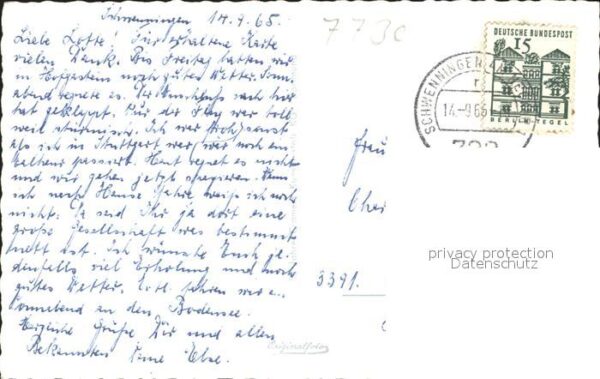 Schwenningen 14.9.65.
Liebe Lotte! Für erhaltene Karte
vielen Dank. Bis Freitag hatten wir
in Hofgastein noch gutes Wetter. Sonn-
abend regnete es. Der Anschluß nach hier
hat geklappt. Nur der Flug war toll
weil stürmisch. Ich war froh, sonst
als ich in Stuttgart war, wer noch am
passiert. Heut regnet es nicht
und wir gehen jetzt spazieren. Wenn
ich nach Hause fahre, weiß ich noch
nicht. Da seid Ihr ja dort eine
große Gesellschaft was bestimmt
nett ist. Ich wünsche Euch je-
denfalls viel Erholung und noch
gutes Wetter. Evtl. fahren wir a.
Sonnabend an den Bodensee.
Herzliche Grüße Dir und allen
Bekannten Eure Else.
773c
DEUTSCHE BUNDESPOST
15
BERLIN-TEGEL
SCHWENNINGEN
14.-9.65
Frau
3391.
privacy protection
Datenschutz
Originalfoto